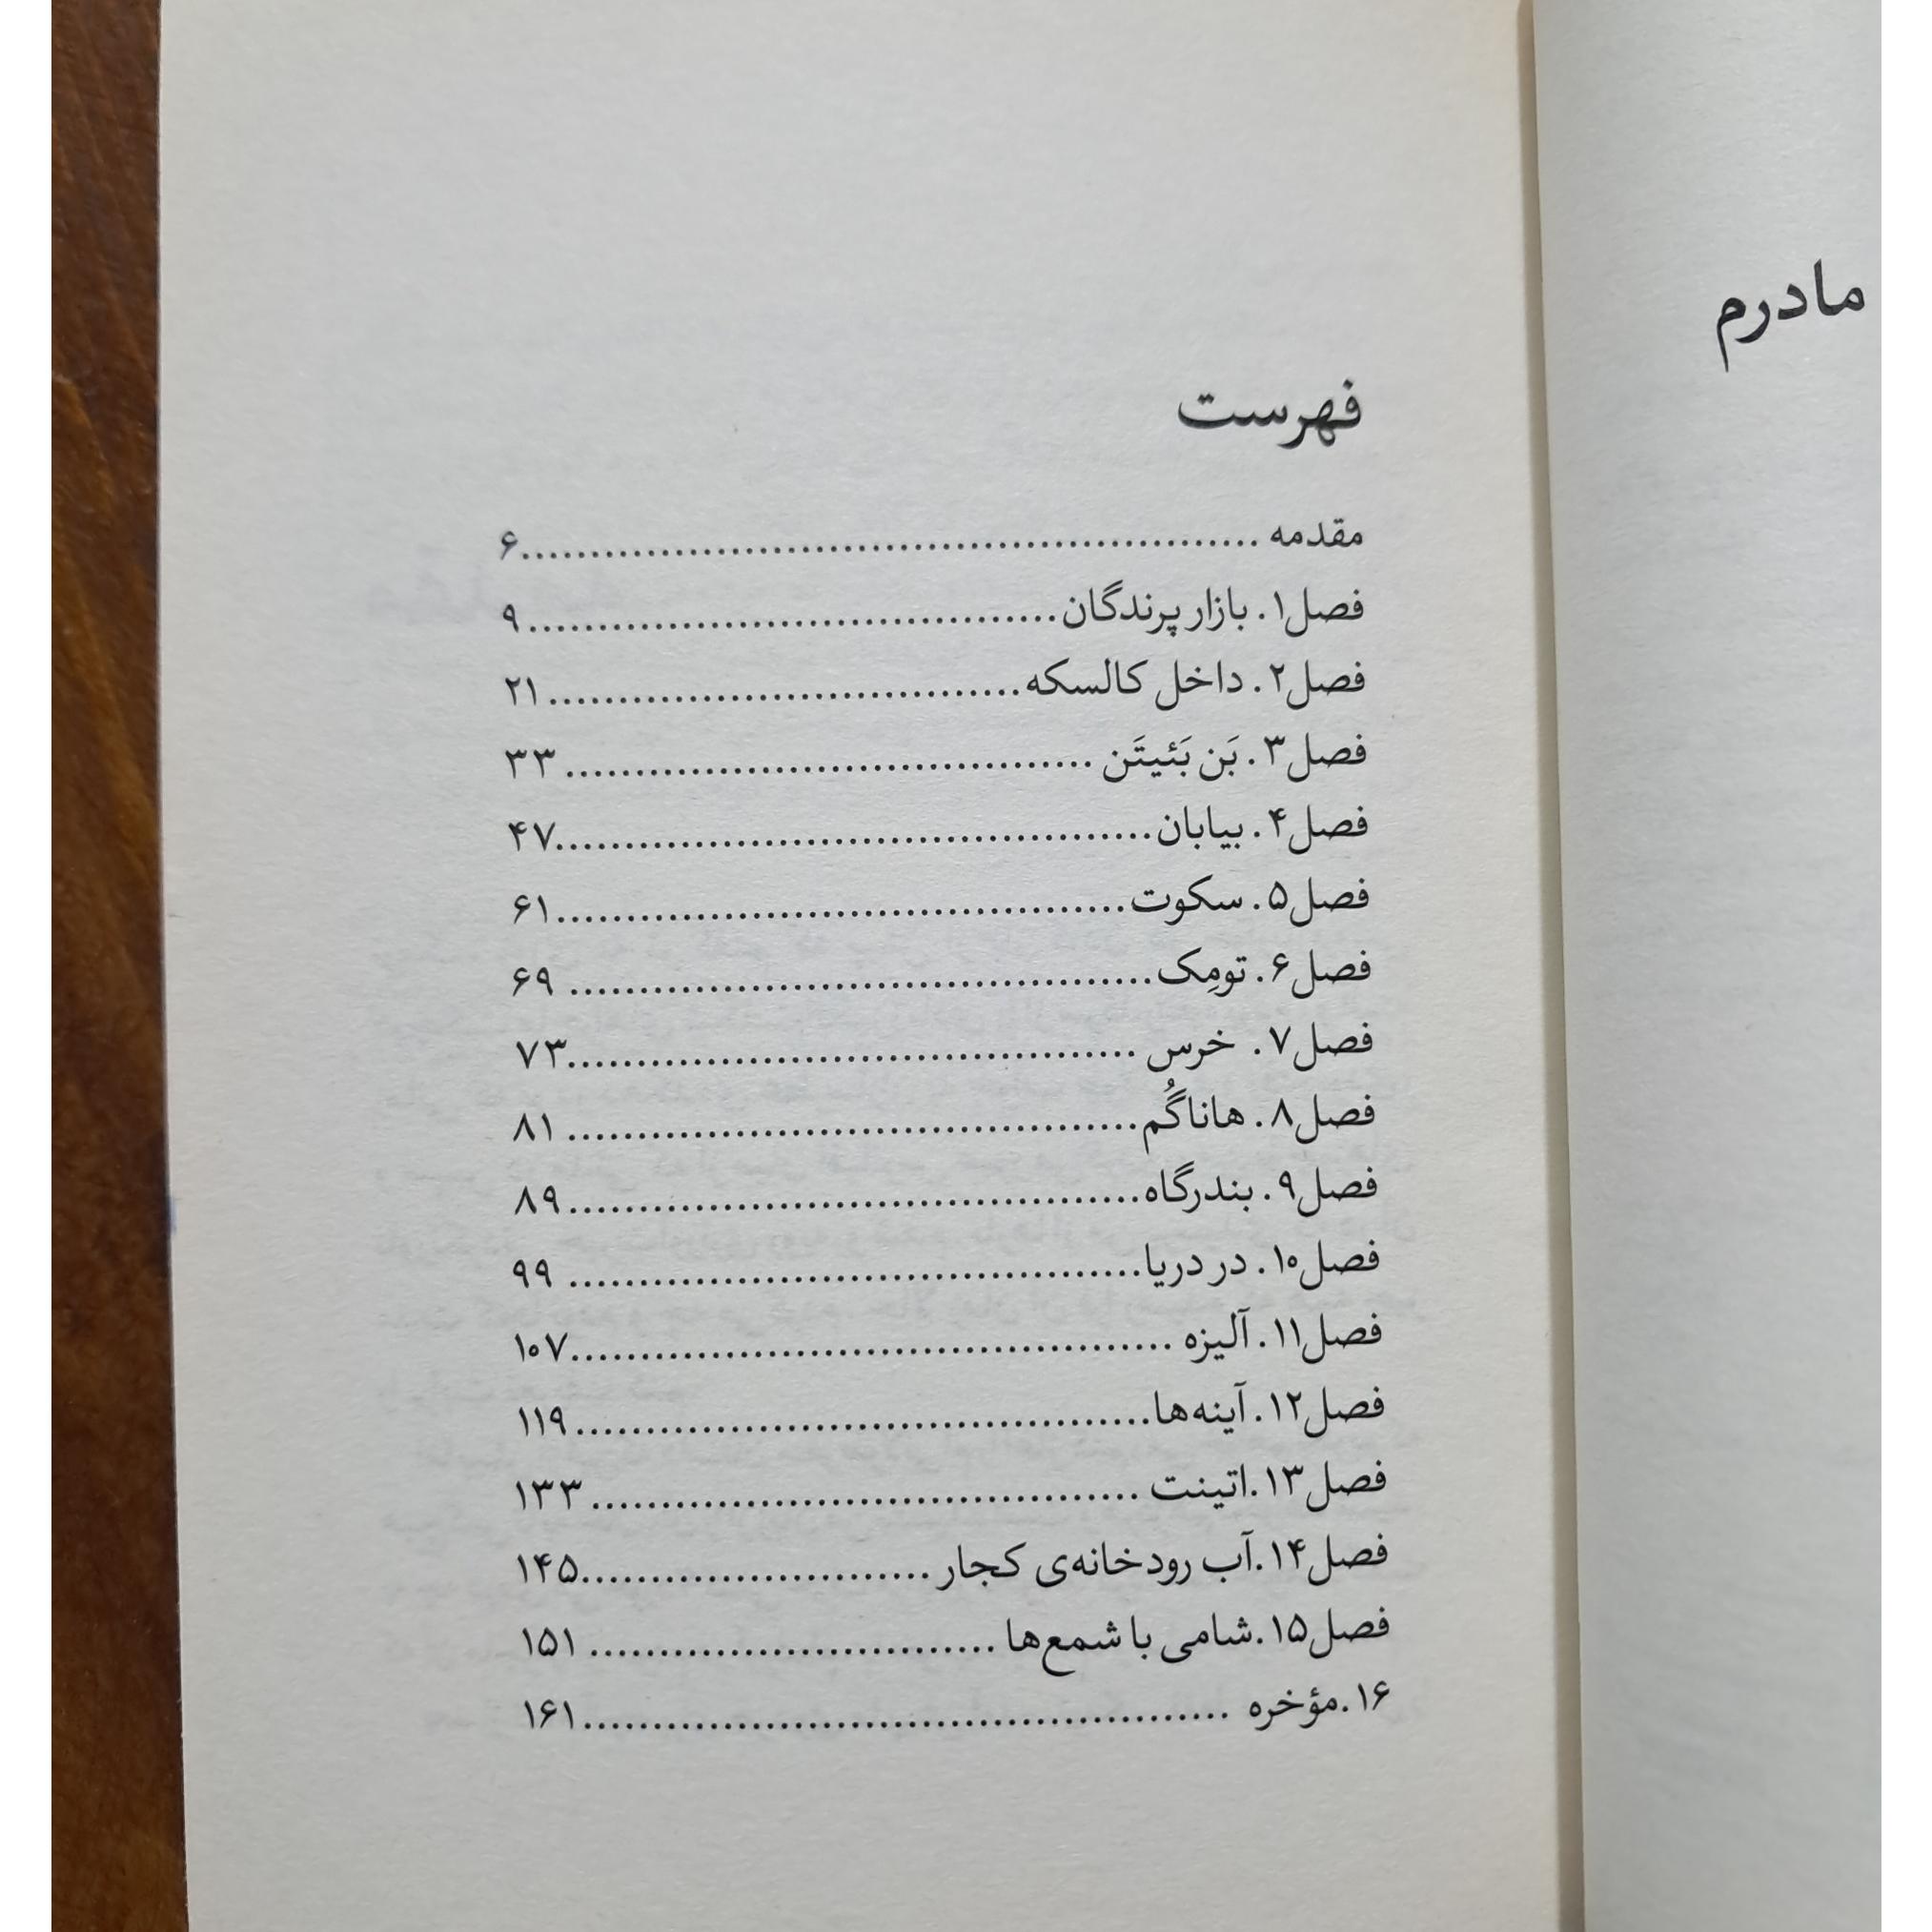 مادرم
فهرست
مقدمه ........................................................۶
فصل۱. بازار پرندگان........................................۹
فصل۲. داخل کالسکه.................................... ۲۱
فصل۳. بَن بَئیتَن ........................................ ۳۳
فصل۴. بیابان.............................................۴۷
فصل۵. سکوت...........................................۶۱
فصل۶. تومِک............................................ ۶۹
فصل۷. خرس ...........................................۷۳
فصل۸. هاناگُم........................................... ۸۱
فصل۹. بندرگاه...........................................۸۹
فصل۱۰. در دریا........................................... ۹۹
فصل۱۱. آلیزه .............................................۱۰۷
فصل۱۲. آینه‌ها...........................................۱۱۹
فصل۱۳.اتینت ......................................... ۱۳۳
فصل۱۴.آب رودخانه‌ی کجار ..........................۱۴۵
فصل۱۵.شامی با شمع‌ها .............................. ۱۵۱
۱۶.مؤخره .................................................۱۶۱